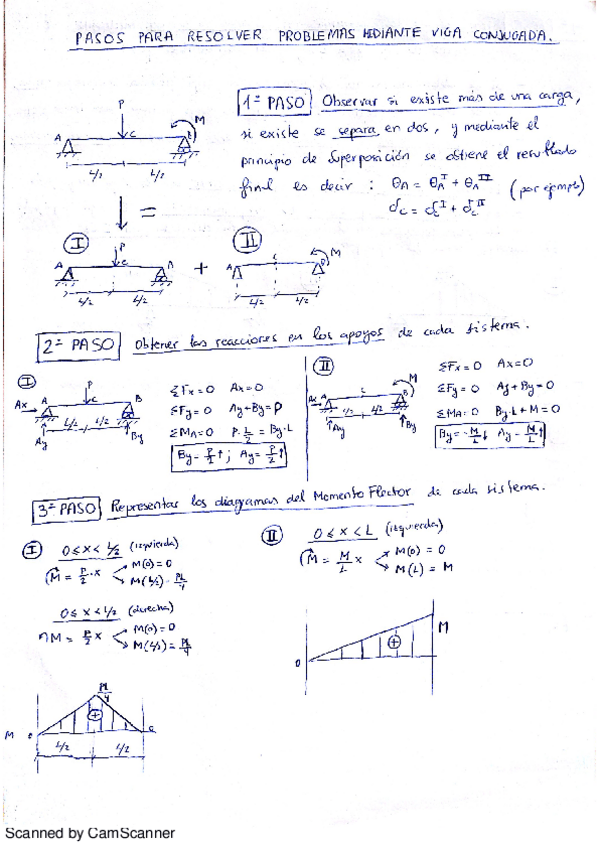 PASOS PARA RESOLVER PROBLEMAS MEDIANTE VIGA CONJUGADA.
1º PASO Observar si existe más de una carga,
si existe se separa en dos, y mediante el
principio de Superposición se obtiene el resultado
final es decir: θA = θA^I + θA^II (por ejemplo)
δC = δC^I + δC^II
P
M
A C B
L/2 L/2
=
I II
P
A C B + A C B M
L/2 L/2 L/2 L/2
2º PASO Obtener las reacciones en los apoyos de cada sistema.
I
P
Ax A C B
L/2 L/2
Ay By
ΣFx=0 Ax=0
ΣFy=0 Ay+By=P
ΣMA=0 P·L/2 = By·L
By=P/2↑; Ay=P/2↑
II
M
Ax A C B
L/2 L/2
Ay By
ΣFx=0 Ax=0
ΣFy=0 Ay+By=0
ΣMA=0 By·L+M=0
By=-M/L↓ Ay=M/L↑
3º PASO Representar los diagramas del Momento Flector de cada sistema.
I 0≤x<L/2 (izquierda)
M = P/2·x M(0)=0
M(L/2)=PL/4
0≤x<L/2 (derecha)
M = P/2 x M(0)=0
M(L/2)=PL/4
II 0≤x<L (izquierda)
M = M/L x M(0)=0
M(L)=M
M
0 +
PL/4
+
M 0
L/2 L/2
Scanned by CamScanner